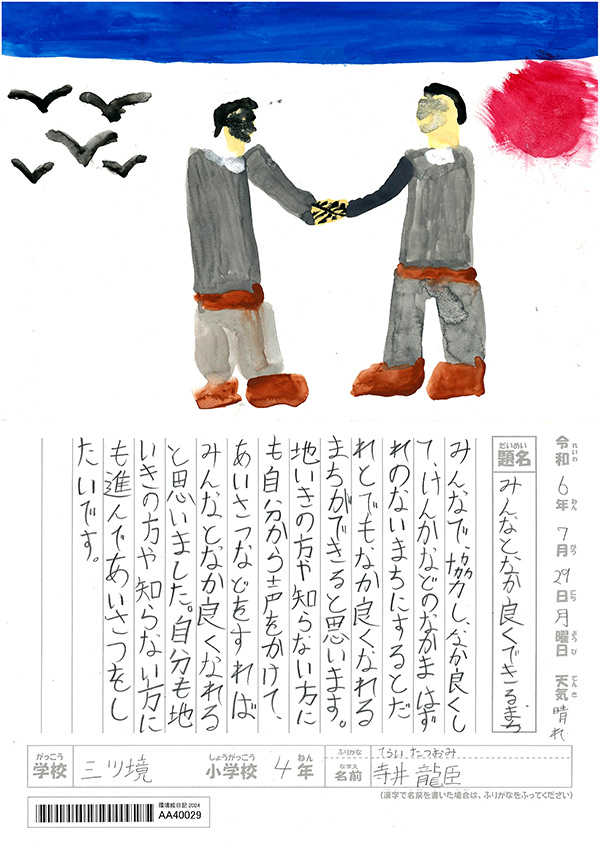 令和6年7月29日月曜日 天気 晴れ
れいわ ねん がつ にち ようび てんき
だいめい
題名 みんなとなか良くできるまち
みんなで、協力し、なか良くし
て、けんかなどのなかまはず
れのないまちにするとだ
れとでもなか良くなれる
まちができると思います。
地いきの方や知らない方に
も自分から声をかけて、
あいさつなどをすれば
みんなとなか良くなれる
と思いました。自分も地
いきの方や知らない方に
も進んであいさつをし
たいです。
がっこう しょうがっこう ねん
学校 三ツ境 小学校 4年
ふりがな てらい たつおみ
なまえ
名前 寺井 龍臣
(漢字で名前を書いた場合は、ふりがなをふってください)
環境絵日記2024
AA40029